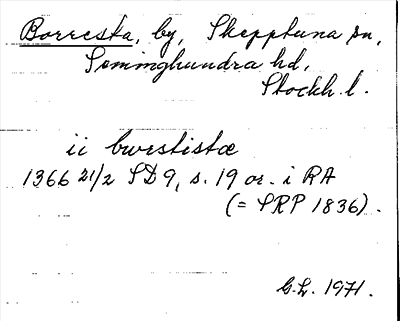 Borresta, by, Skepptuna sn,
Seminghundra hd,
Stockh. l.
ii bwrstistæ
1366 21/2 SD 9, s. 19 or. i RA
(= SRP 1836).
G.L. 1971.